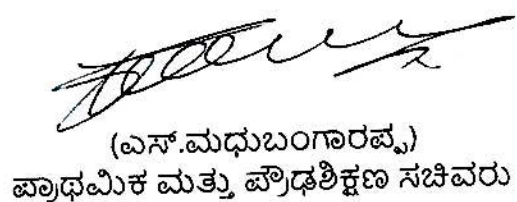 (ಎಸ್.ಮಧುಬಂಗಾರಪ್ಪ)
ಪ್ರಾಥಮಿಕ ಮತ್ತು ಪ್ರೌಢಶಿಕ್ಷಣ ಸಚಿವರು